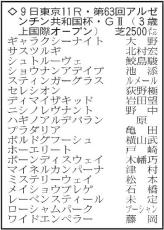 ◇９日東京11Ｒ・第63回アルゼ
ンチン共和国杯・ＧⅡ（３歳
上国際オープン）　芝2500㍍
ギャラクシーナイト　大野
サスツルギ　北村宏
シュトルーヴェ　鮫島駿
ショウナンアデイブ　池添
スティンガーグラス　ルメール
セレシオン　荻野極
ディマイザキッド　岩田望
ニシノレヴナント　野中
ハギノアルデバラン　原
プラダリア　亀田
ボルドグフーシュ　横山武
ホーエリート　戸崎
ボーンディスウェイ　木幡巧
マイネルカンパーナ　津村
ミステリーウェイ　松本
メイショウブレゲ　石橋
レーベンスティール　未定
ローシャムパーク　プーシャン
ワイドエンペラー　藤岡